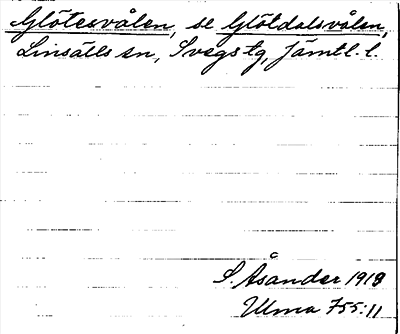 Glötesvålen, se Glötdalsvålen,
Linsälls sn, Svegs tg, Jämtl. l.
S. Åsander 1918
Ulma 755:11